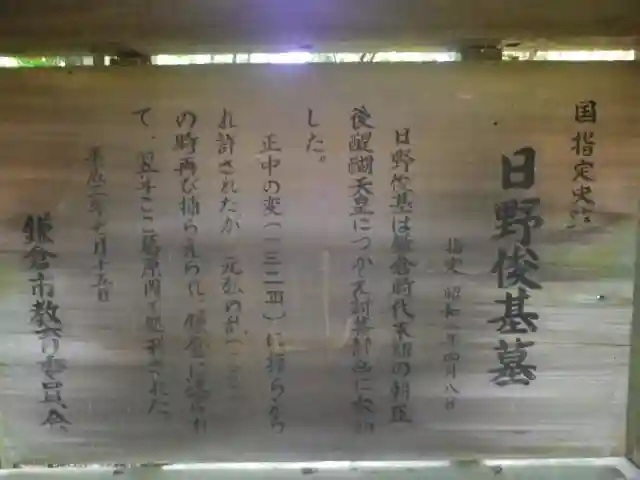 国指定史跡
日野俊基墓
指定 昭和二年四月八日
日野俊基は鎌倉時代末期の朝臣
後醍醐天皇につかえ討幕計画に参加
した。
正中の変(一三二四)に捕らえら
れ許されたが 元弘の乱
の時再び捕らえられ、鎌倉に送られ
て、翌年ここ葛原岡で処刑された。
平成二年七月十五日
鎌倉市教育委員会